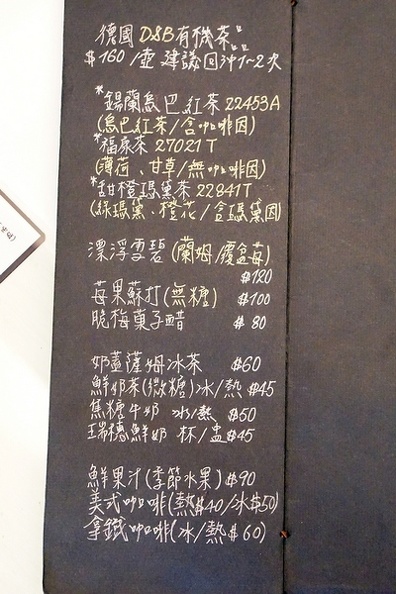 德國 D&B有機茶
$160/壺 建議回沖1~2次
*錫蘭烏巴紅茶 22453A
(烏巴紅茶/含咖啡因)
*福康茶 27021T
(薄荷、甘草/無咖啡因)
*甜橙瑪黛茶 22841T
(綠瑪黛、橙花/含瑪黛因)
漂浮雪碧(蘭姆/覆盆莓)
$120
莓果蘇打(無糖) $100
脆梅菓子醋 $80
奶蓋薩姆冰茶 $60
鮮奶茶(微糖)冰/熱 $45
焦糖牛奶 冰/熱 $50
瑞穗鮮奶 杯/盅 $45
鮮果汁(季節水果)$90
美式咖啡(熱$40/冰$50)
拿鐵咖啡(冰/熱$60)